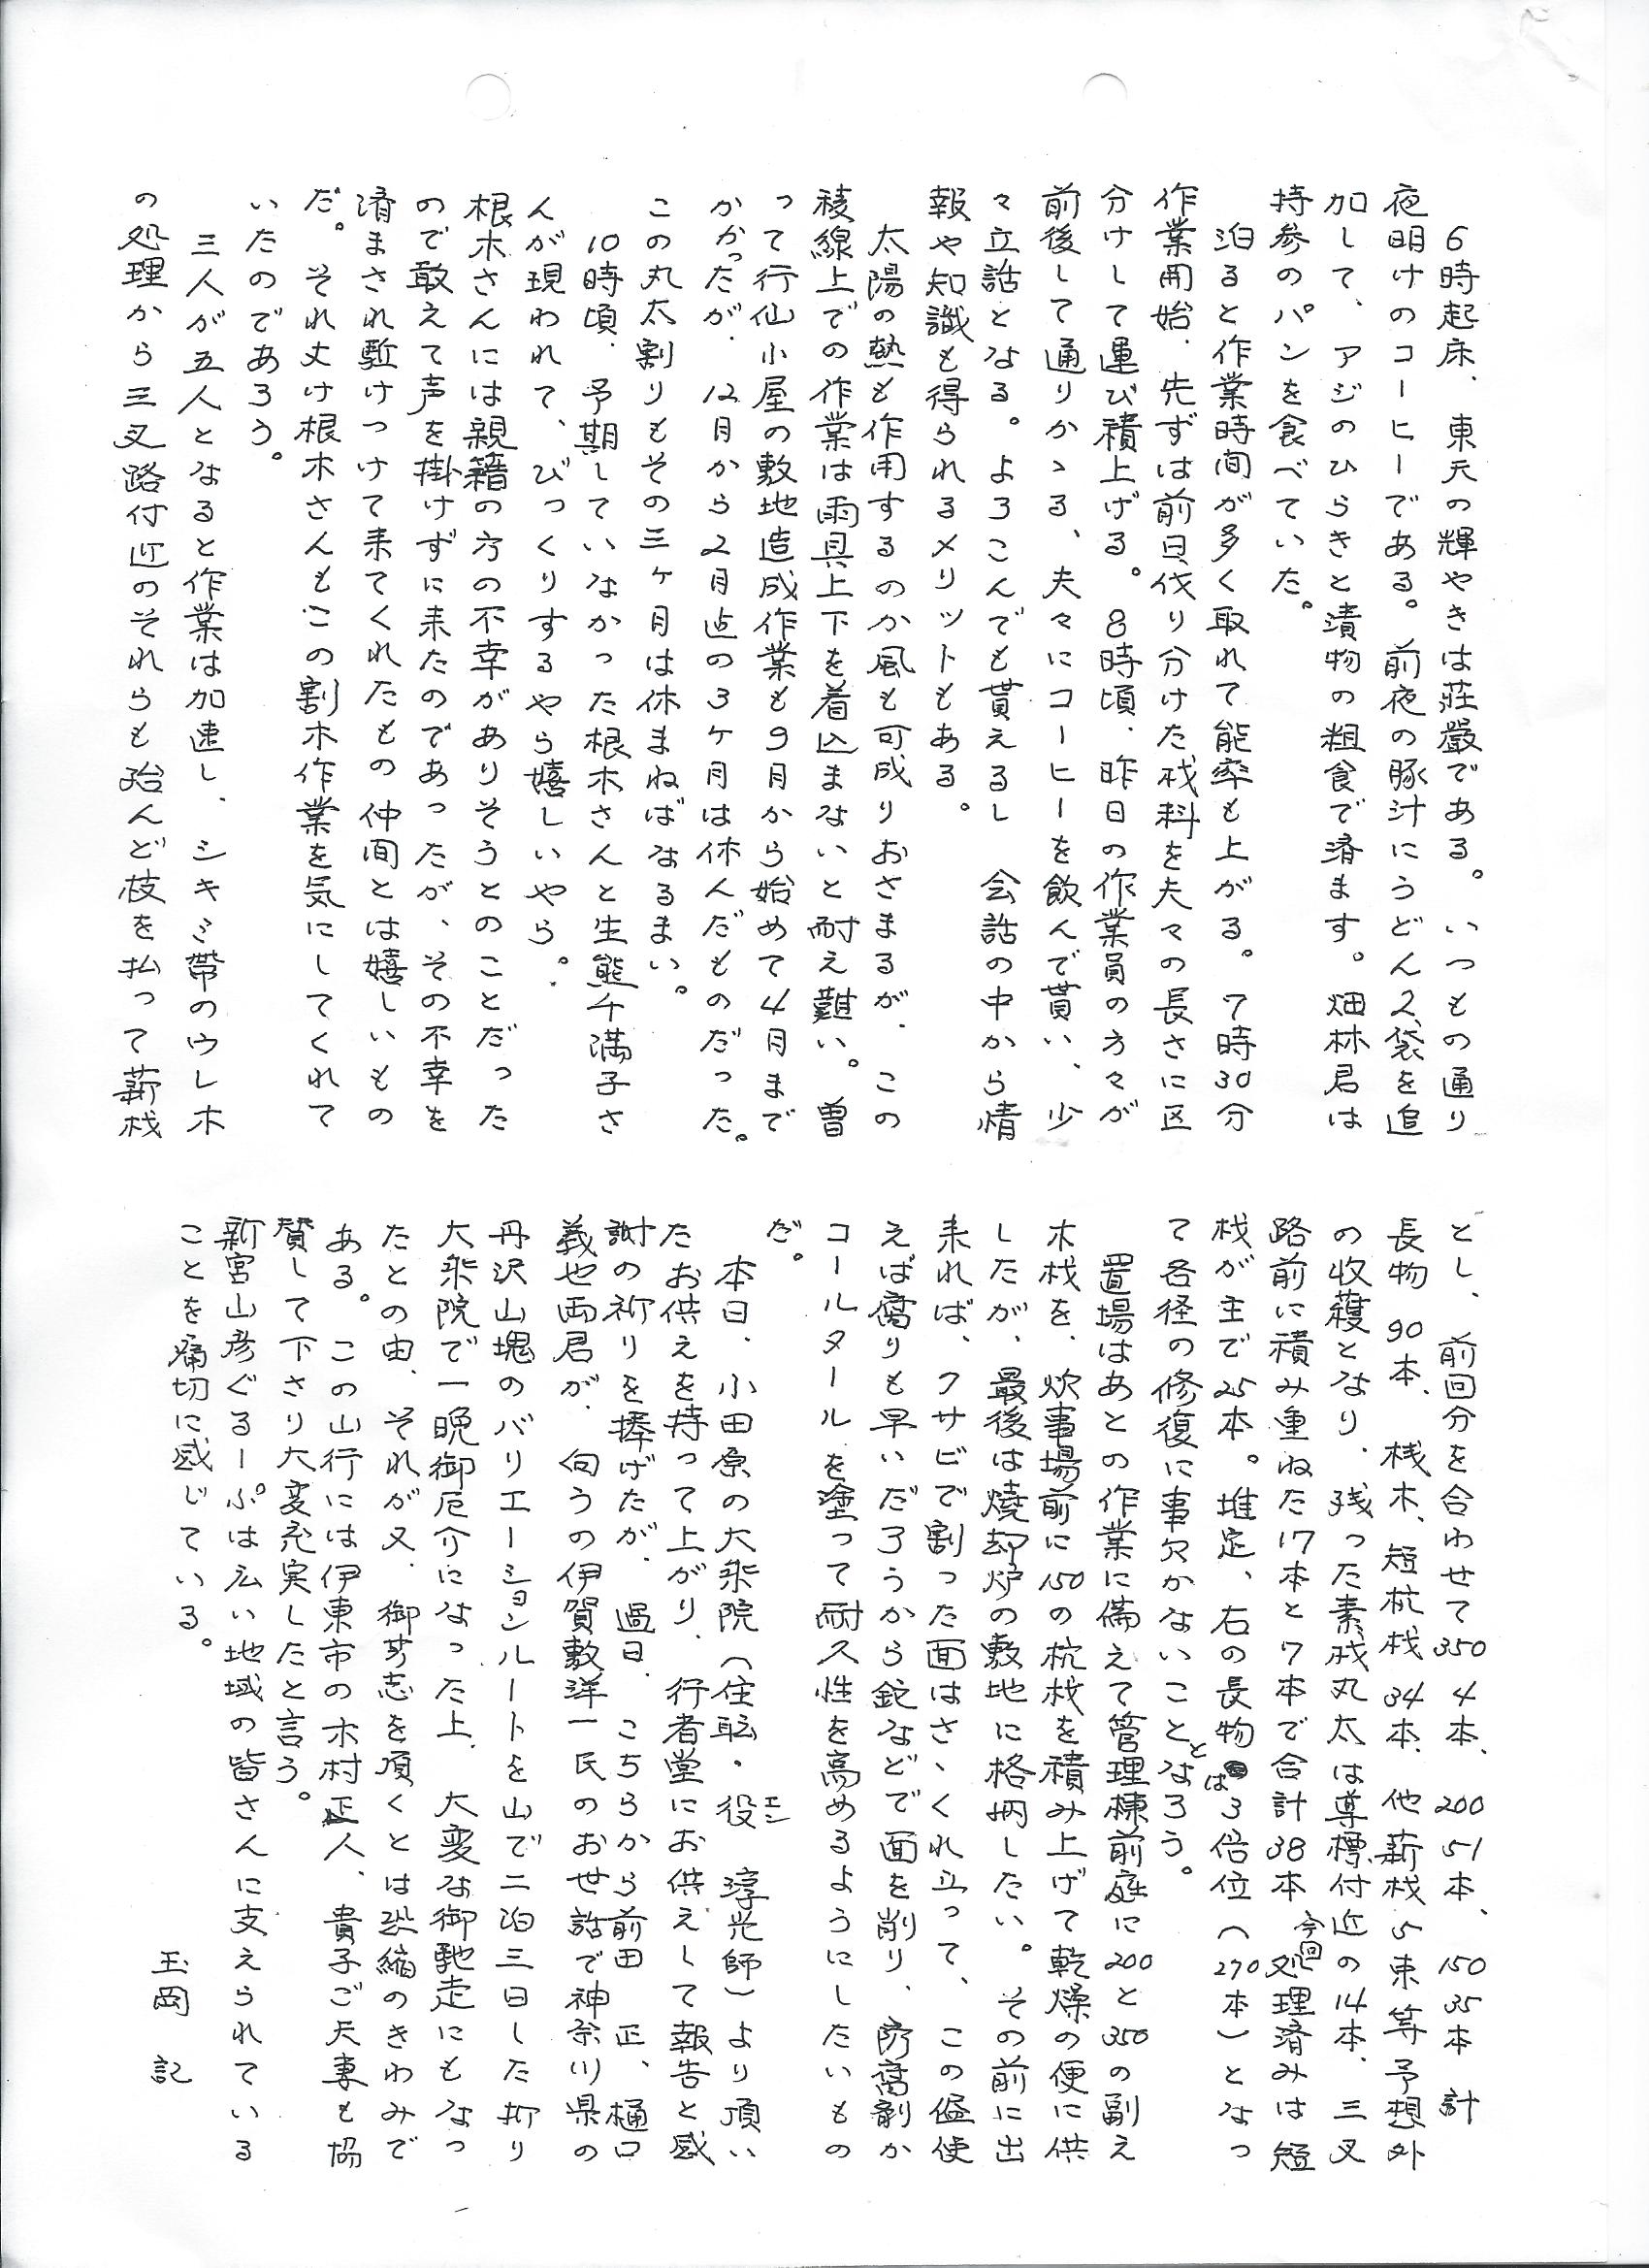 6時起床、東天の輝やきは荘厳である。いつもの通り
夜明けのコーヒーである。前夜の豚汁にうどん2袋を追
加して、アジのひらきと漬物の粗食で済ます。畑林君は
持参のパンを食べていた。
泊ると作業時間が多く取れて能率も上がる。7時30分
作業開始、先ずは前日伐り分けた材料を夫々の長さに区
分けして運び積上げる。8時頃、昨日の作業員の方々が
前後して通りかゝる、夫々にコーヒーを飲んで貰い、少
々立話となる。よろこんでも貰えるし 会話の中から情
報や知識も得られるメリットもある。
太陽の熱も作用するのか風も可成りおさまるが、この
稜線上での作業は雨具上下を着込まないと耐え難い。曽
って行仙小屋の敷地造成作業も9月から始めて4月まで
かかったが、12月から2月迄の3ヶ月は休んだものだった。
この丸太割りもその三ヶ月は休まねばなるまい。
10時頃、予期していなかった根木さんと生熊千満子さ
んが現われて、びっくりするやら嬉しいやら。
根木さんには親籍の方の不幸がありそうとのことだった
ので敢えて声を掛けずに来たのであったが、その不幸を
済まされ駈けつけて来てくれたもの 仲間とは嬉しいもの
だ。それ丈け根木さんもこの割木作業を気にしてくれて
いたのであろう。
三人が五人となると作業は加速し、シキミ帯のウレ木
の処理から三叉路付近のそれらも殆んど枝を払って薪材
とし、前回分を合わせて350 4本、200 51本、150 35本 計
長物90本、桟木、短杭材34本、他薪材5束等予想外
の収穫となり、残った素材丸太は導標付近の14本、三叉
路前に積み重ねた17本と7本で合計38本 今回処理済みは短
材が主で25本。推定、右の長物は3倍位（270本）となっ
て各径の修復に事欠かないこととなろう。
置場はあとの作業に備えて管理棟前庭に200と350の副え
木材を、炊事場前に150の杭材を積み上げて乾燥の便に供
したが、最後は焼却炉の敷地に格納したい。その前に出
来れば、クサビで割った面はさゝくれ立って、この儘使
えば腐りも早いだろうから鉈などで面を削り、防腐剤か
コールタールを塗って耐久性を高めるようにしたいもの
だ。
本日、小田原の大乗院（住職・役エン 淳光師）より頂い
たお供えを持って上がり、行者堂にお供えして報告と感
謝の祈りを捧げたが、過日、こちらから前田 正、樋口
義也両君が、向うの伊賀敷洋一氏のお世話で神奈川県の
丹沢山塊のバリエーションルートを山で二泊三日した折り
大乗院で一晩御厄介になった上、大変な御馳走にもなっ
たとの由、それが又、御芳志を頂くとは恐縮のきわみで
ある。この山行には伊東市の木村正人、貴子ご夫妻も協
賛して下さり大変充実したと言う。
新宮山彦ぐるーぷは広い地域の皆さんに支えられている
ことを痛切に感じている。
玉岡 記